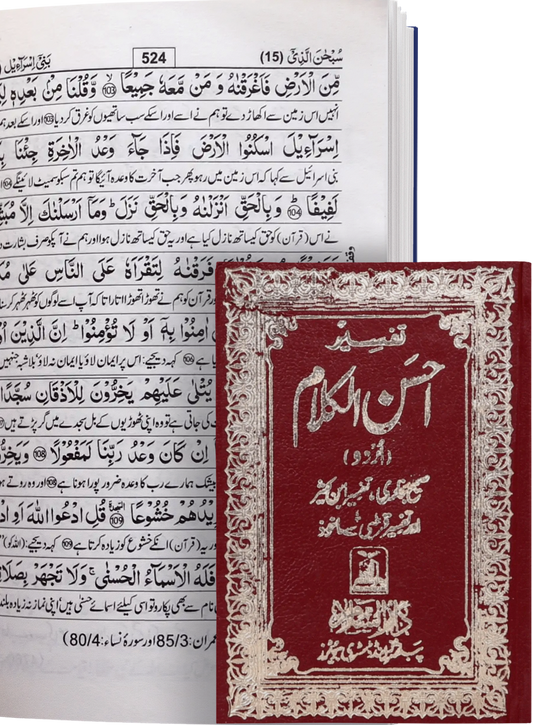 سُبْحٰنَ الَّذِیْۤ (15)
524
بَنِیْۤ اِسْرَآءِیْل
مِّنَ الْاَرْضِ فَاَغْرَقْنٰهُ وَ مَنْ مَّعَهٗ جَمِیْعًا ۙ103 وَّ قُلْنَا مِنْ بَعْدِهٖ
انہیں اس زمین سے اکھاڑ دے تو ہم نے اسے اور اسکے سب ساتھیوں کو غرق کر دیا 103 اور اسکے بعد ہم
اِسْرَآءِیْلَ اسْكُنُوا الْاَرْضَ فَاِذَا جَآءَ وَعْدُ الْاٰخِرَةِ جِئْنَا
بنی اسرائیل سے کہا کہ اس زمین میں رہو پھر جب آخرت کا وعدہ آئیگا تو ہم تم سبکو سمیٹ لائینگے 104
لَفِیْفًا ؕ104 وَ بِالْحَقِّ اَنْزَلْنٰهُ وَ بِالْحَقِّ نَزَلَ ؕ وَ مَاۤ اَرْسَلْنٰكَ اِلَّا
نے اس (قرآن) کو حق کیساتھ نازل کیا ہے اور یہ حق کیساتھ نازل ہوا اور ہم نے آپکو صرف بشارت
فَرَقْنٰهُ لِتَقْرَاَهٗ عَلَى النَّاسِ عَلٰى
قرآن کو ہم نے تھوڑا تھوڑا اتارا تاکہ آپ اسے لوگوں کو ٹھہر ٹھہر کر
اٰمِنُوْا بِهٖۤ اَوْ لَا تُؤْمِنُوْا ؕ اِنَّ الَّذِیْنَ
کہہ دیجیے: اس پر ایمان لاؤ یا ایمان نہ لاؤ، بلاشبہ جنہیں
یُتْلٰى عَلَیْهِمْ یَخِرُّوْنَ لِلْاَذْقَانِ سُجَّدًا
کی جاتی ہے تو وہ اپنی ٹھوڑیوں کے بل سجدے میں گر پڑتے ہیں
اِنْ كَانَ وَعْدُ رَبِّنَا لَمَفْعُوْلًا 108
بیشک ہمارے رب کا وعدہ ضرور پورا ہونا ہے 108 اور وہ روتے
یَزِیْدُهُمْ خُشُوْعًا 109 قُلِ ادْعُوا اللّٰهَ اَوِ
(قرآن) انکے خشوع کو زیادہ کرتا ہے 109 کہہ دیجیے:
فَلَهُ الْاَسْمَآءُ الْحُسْنٰى ۚ وَ لَا تَجْهَرْ
نام سے بھی پکارو تو اسی کیلئے اسمائے حسنیٰ ہیں، اپنی نماز نہ زیادہ
عمران: 85/3 اور سورۂ نساء: 80/4)
تفسیر
احسن الکلام
(اُردو)
صحیح بخاری، تفسیر ابن کثیر
اور تفسیر قرطبی سے ماخوذ
دارالسلام